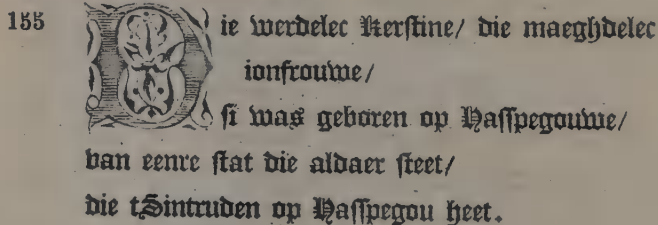 155 Die werdelec Kerstine/ die maeghdelec
ionfrouwe/
si was geboren op Hasspegouwe/
van eenre stat die aldaer steet/
die tSintruden op Hasspegou heet.